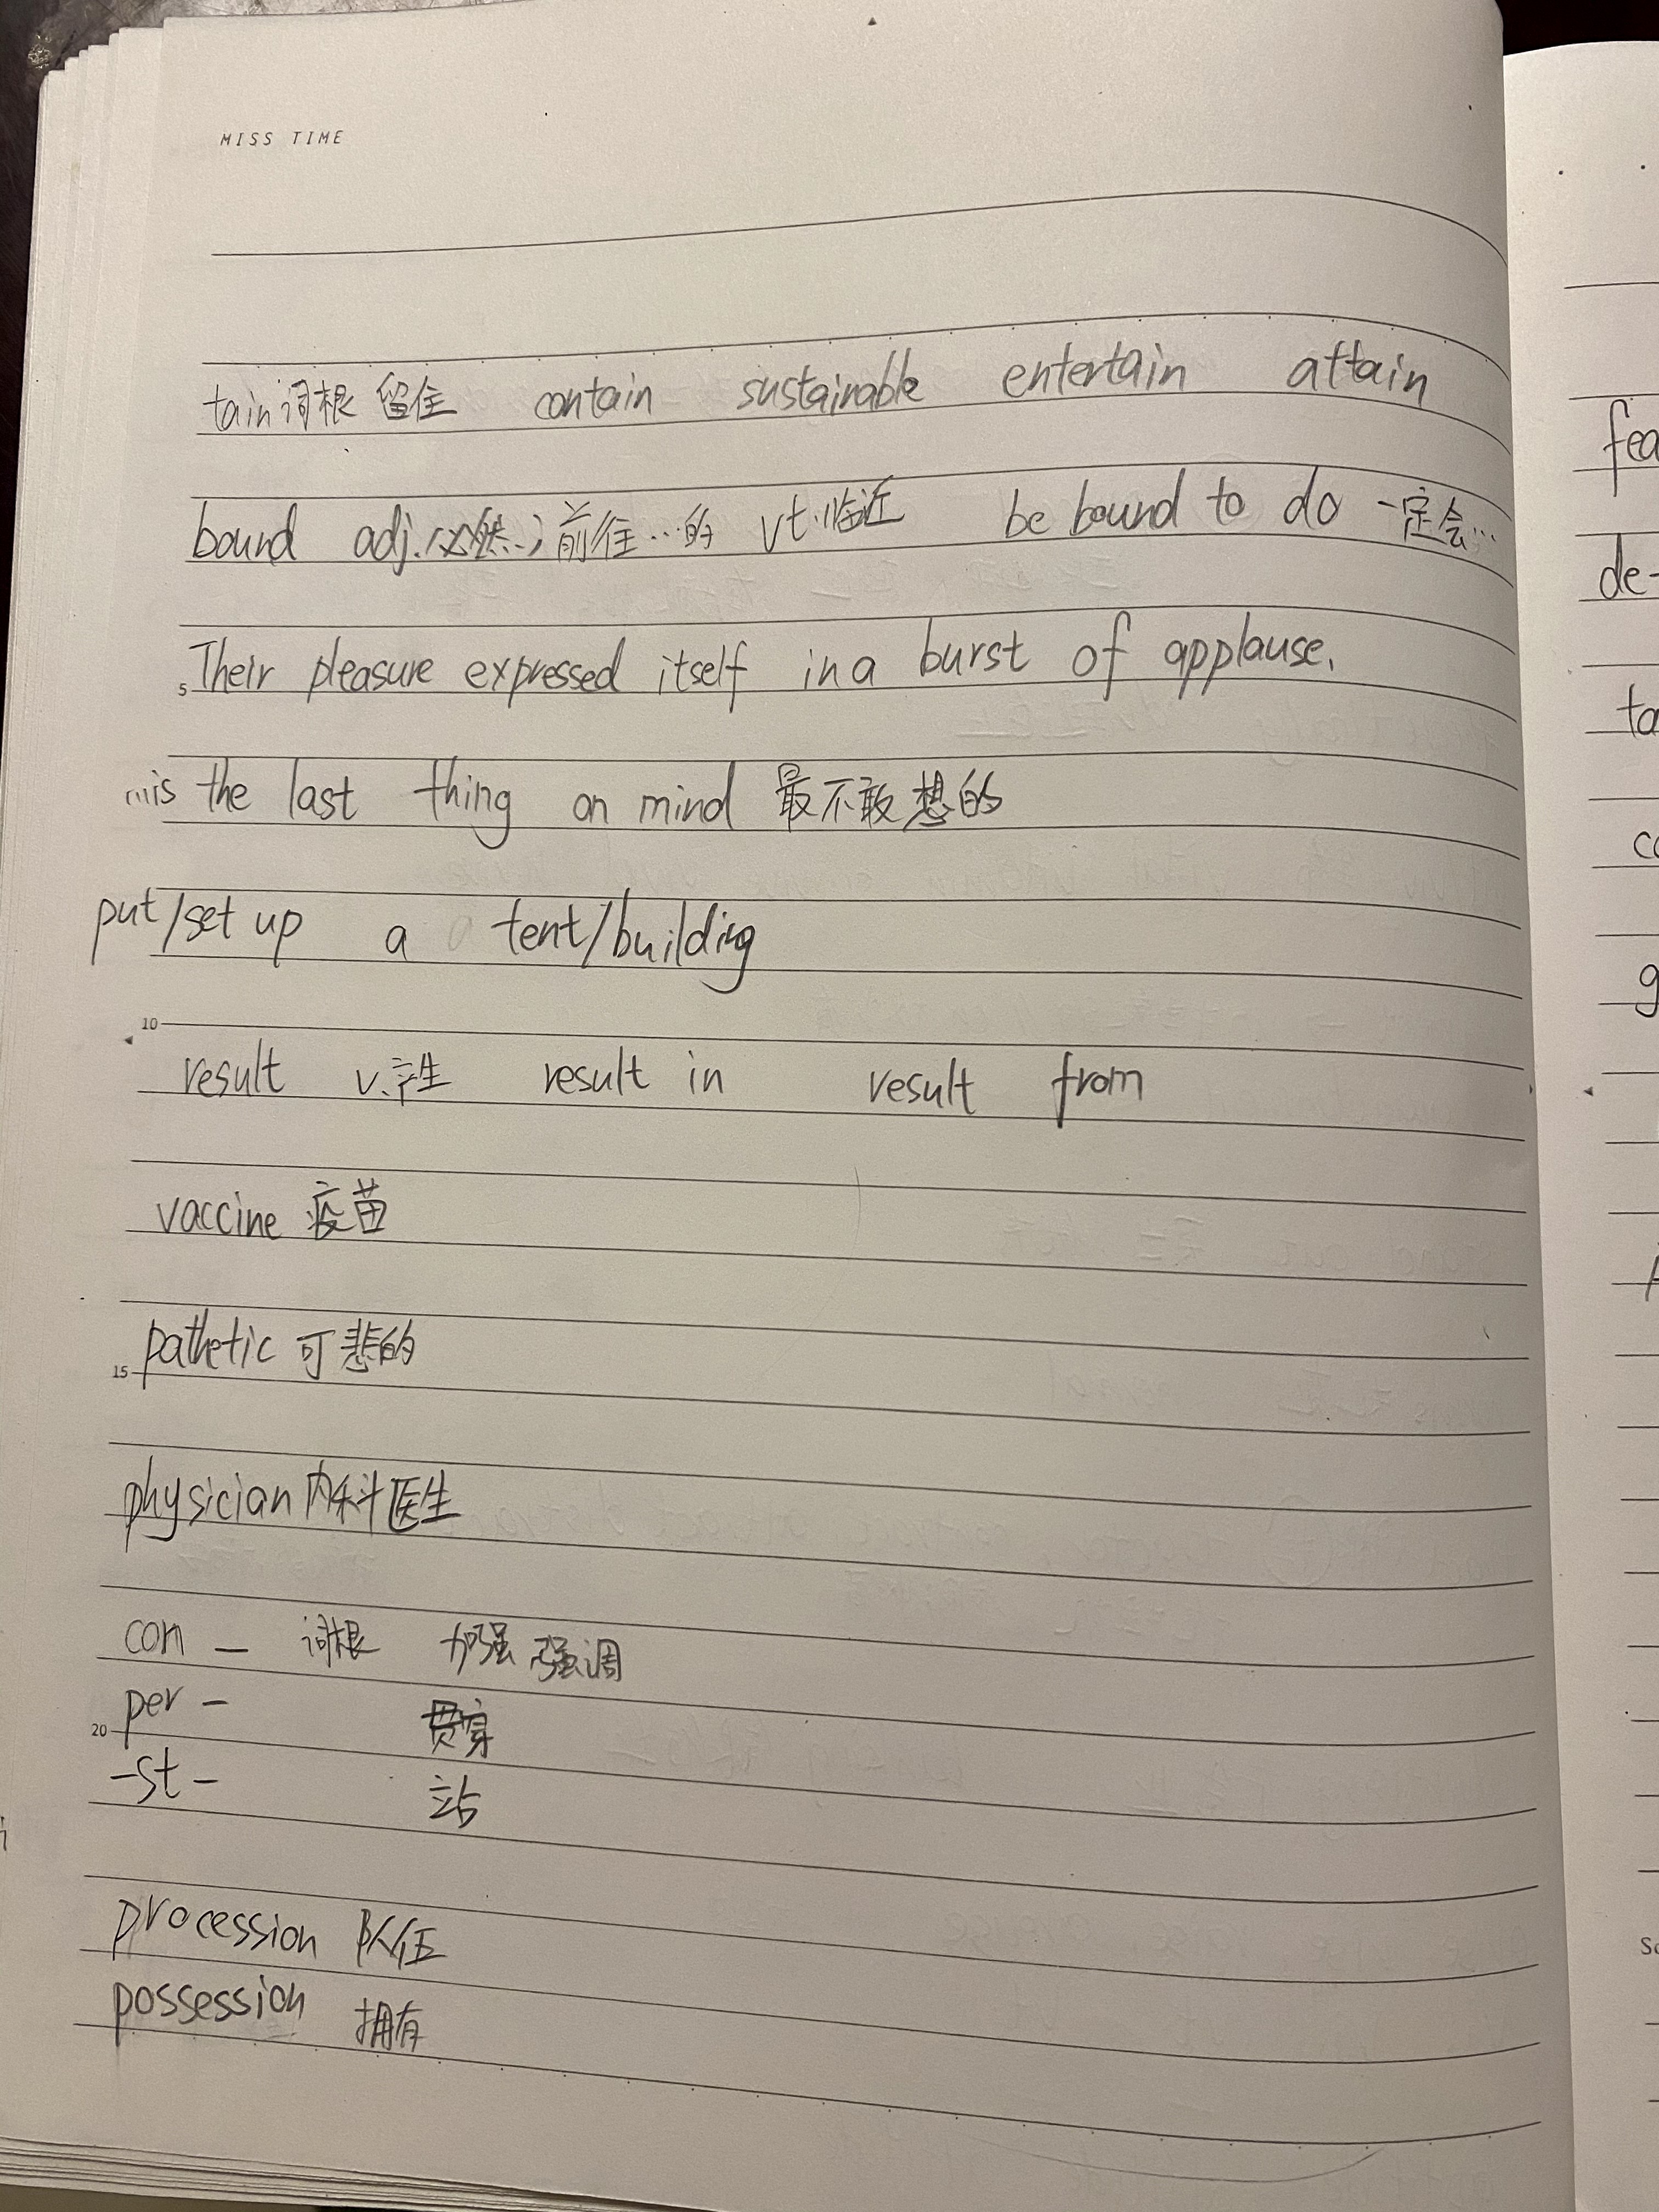 MISS TIME
tain 词根 留住 contain sustainable entertain attain
bound adj. 必然; 前往…的 vt. 临近 be bound to do 一定会…
5 Their pleasure expressed itself in a burst of applause.
…is the last thing on mind 最不敢想的
put/set up a tent/building
10
result v. 产生 result in result from
vaccine 疫苗
15 pathetic 可悲的
physician 内科医生
con – 加强 强调
20 per – 贯穿
-st- 站
procession 队伍
possession 拥有
fea
de-
ta
g